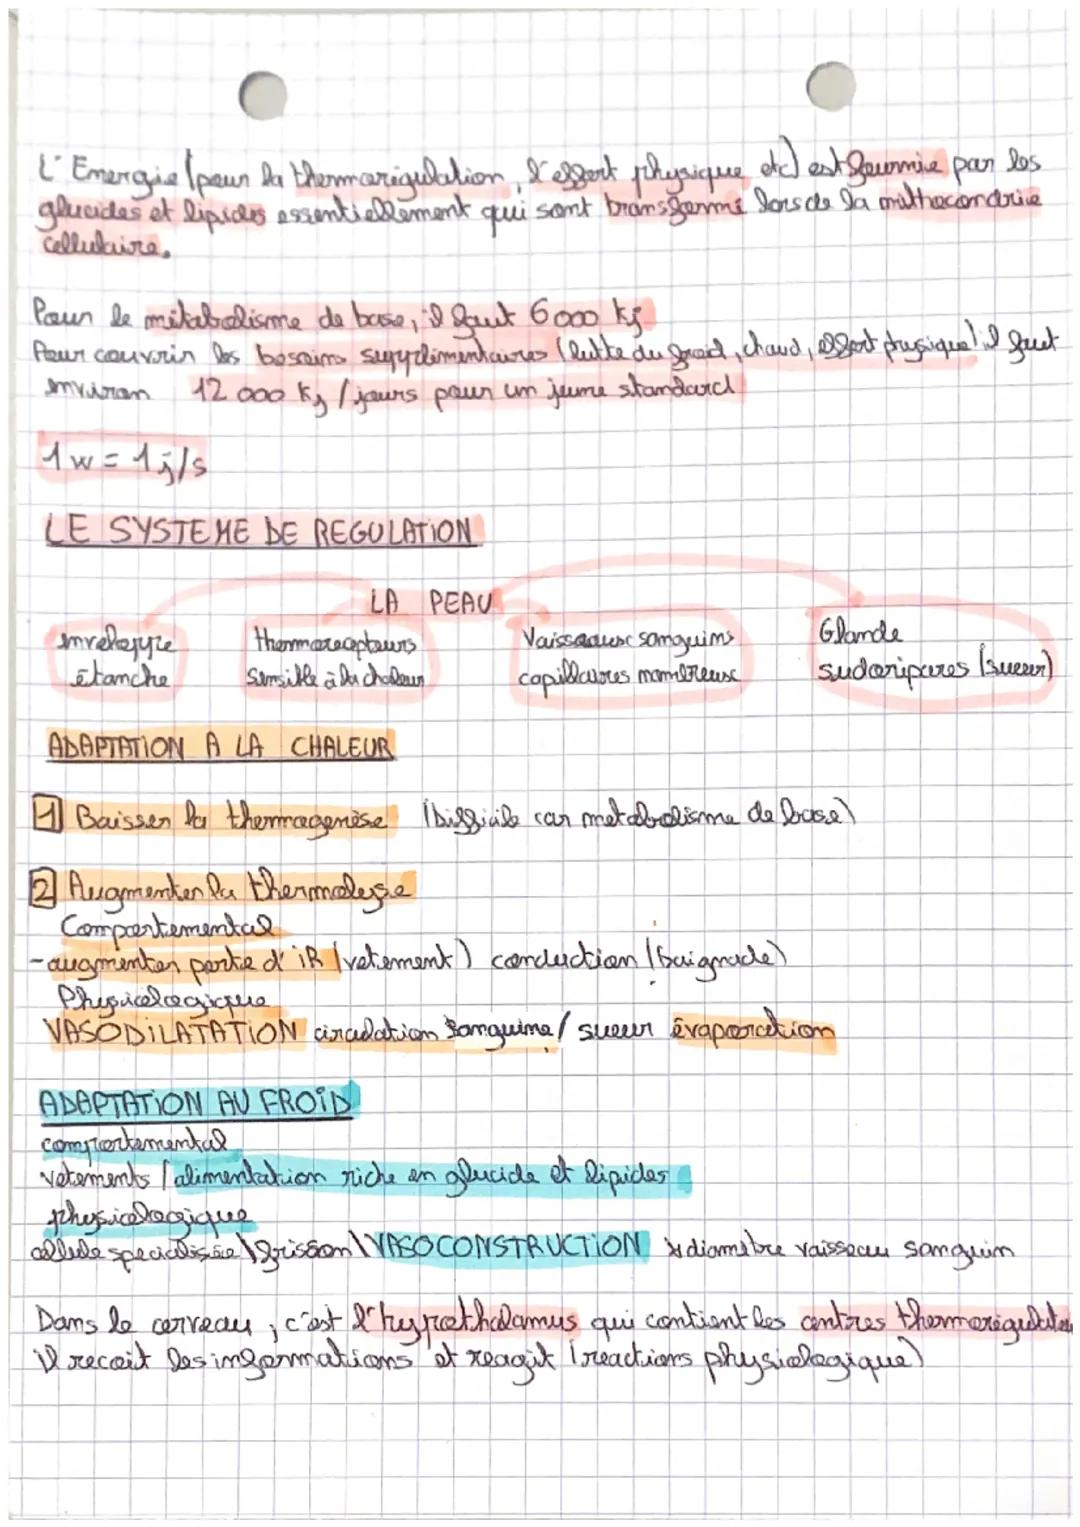 L'Energie (pour la thermorégulation, l'effort physique etc) est fournie par les
glucides et lipides essentiellement qui sont transformé lors de la mithocondrie
cellulaire.
Pour le métabolisme de base, il faut 6000 kj
Pour couvrir les besoins supplimentaires (lutte du froid, chaud, effort physique) il faut
environ 12 000 kj / jours pour un jeune standard
1 w = 1 j/s
LE SYSTEME DE REGULATION
LA PEAU
enveloppe
étanche
thermorecepteurs
sensible à la chaleur
Vaisseaux sanguins
capillaires nombreux
Glande
sudoripares (sueur)
ADAPTATION A LA CHALEUR
1 Baisser la thermogenèse (difficile car metabolisme de base)
2 Augmenter la thermolyse
Comportemental
-augmenter perte d'iR (vetement) conduction (baignade)
Physiologique
VASODILATATION circulation sanguine / sueur évaporation
ADAPTATION AU FROID
comportemental
vetements / alimentation riche en glucide et lipides
physiologique
cellule specialisée \ frisson \ VASOCONSTRUCTION ↘ diamètre vaisseau sanguin
Dans le cerveau, c'est l'hypothalamus qui contient les centres
il recoit les informations et reagit (reactions physiologique)